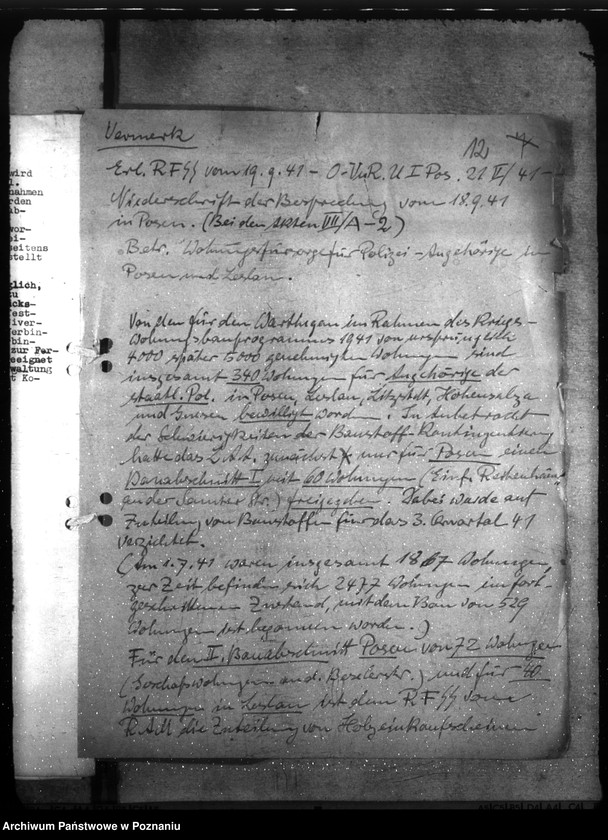 wird
l.
nahmen
rden
ab-
vor-
ei-
seitens
stellt
glich,
zu
cks-
fest-
iver-
erbin-
bin-
zur Fer-
eeignet
waltung
t Ko-
Vermerk
12
Erl. RFSS vom 19.9.41 – O-VuR. U I Pos. 21 II/41 –
Niederschrift der Besprechung vom 18.9.41
in Posen. (Bei den Akten VII/A-2)
Betr. Wohnungsfürsorge für Polizei-Angehörige in
Posen und Leslau.
Von den für den Warthegau im Rahmen des Kriegs-
wohnungsbauprogrammes 1941 von ursprünglich
4000 später 5000 genehmigten Wohnungen sind
insgesamt 340 Wohnungen für Angehörige der
staatl. Pol. in Posen, Leslau, Litzstdt, Hohensalza
und Gnesen bewilligt word. In Anbetracht
der Schwierigkeiten der Baustoff-Kontingentierung
hatte das zunächst nur für Posen einen
Bauabschnitt I mit 60 Wohnungen (Einf. Reihenhäuser
an der Samter Str.) freigegeben. Dabei wurde auf
Zuteilung von Baustoffen für das 3. Quartal 41
verzichtet.
(Am 1.7.41 waren insgesamt 1867 Wohnungen,
zur Zeit befinden sich 2477 Wohnungen im fort-
geschrittenen Zustand, mit dem Bau von 529
Wohnungen ist begonnen worden.)
Für den II. Bauabschnitt Posen von 72 Wohnungen
(Geschoßwohnungen a. d. Beselerstr.) und für 40
Wohnungen in Leslau ist dem RFSS vom
RAM die Zuteilung von Holzeinkaufscheinen
Archiwum Państwowe w Poznaniu